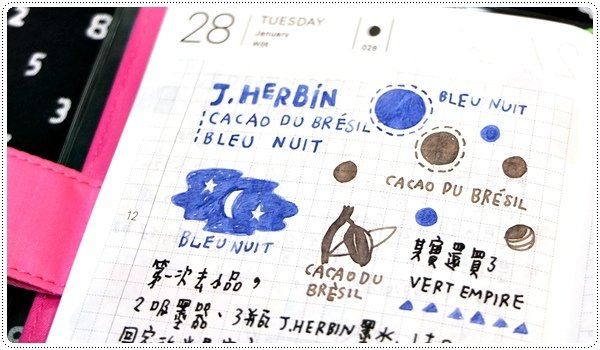 8
5
3
28
TUESDAY
January
028
J.HERBIN
CACAO DU BRÉSIL
BLEU NUIT
BLEU NUIT
CACAO DU BRÉSIL
12
BLEU NUIT
CACAO DU
BRÈSIL
其實還買了
VERT EMPIRE
第一次去品,
2吸墨器、3瓶J.HERBIN墨水,